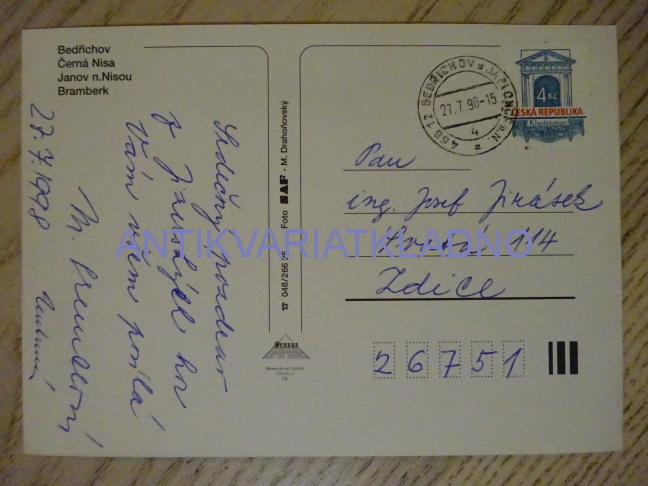 Bedřichov
Černá Nisa
Janov n.Nisou
Bramberk
Srdečný pozdrav
z Jizerských hor
Vám všem posílá
M.
27.7.1998
Foto SAF - M. Drahoňovský
☎ 048/266
468 12 BEDŘICHOV u JABLONCE n.N.
27.7.98-15
4
4 Kč
ČESKÁ REPUBLIKA
Klasicismus
Pan
ing. Josef Jirásek
114
Zdice
26751
ANTIKVARIATKLADNO